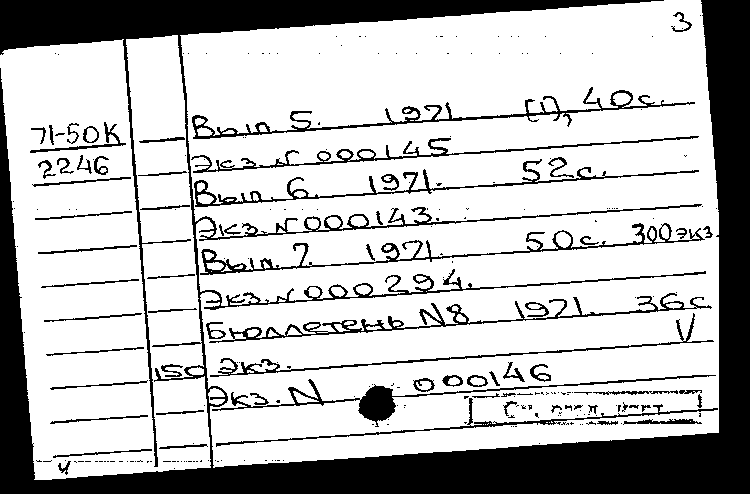 3
71-50К
2246
Вып. 5. 1971 [1], 40с.
Экз. N 000145
Вып. 6. 1971. 52с.
Экз. N 000143.
Вып. 7. 1971. 50с. 300 экз
Экз. N 000294.
Бюллетень N8 1971. 36с
V
150 экз.
Экз. N 000146